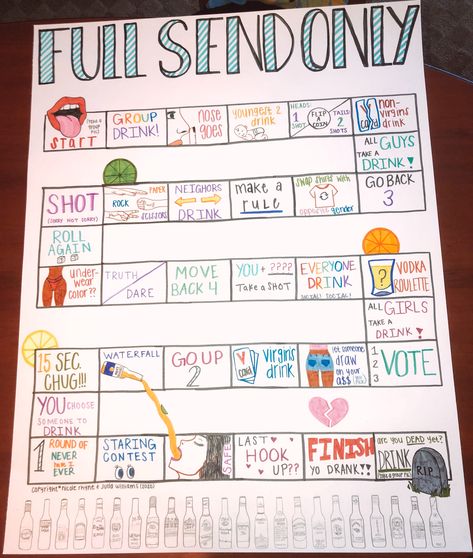 FULL SEND ONLY
START
GROUP
DRINK!
nose
goes
youngest 2
drink
HEADS:
1
SHOT
FLIP
A
COIN
TAILS:
2
SHOTS
V
card
non-
virgins
drink
ALL GUYS
TAKE A
DRINK!
GO BACK
3
swap shirts with
opposite gender
make a
rule
NEIGHORS
DRINK
PAPER
ROCK
SCISSORS
SHOT
(SORRY NOT SORRY)
ROLL
AGAIN
under-
wear
color??
TRUTH
DARE
MOVE
BACK 4
YOU + ????
Take a SHOT
EVERYONE
DRINK
SOCIAL! SOCIAL!
VODKA
ROULETTE
ALL GIRLS
TAKE A
DRINK!
1
2
3
VOTE
let someone
draw
on your
a$$
V
card
virgins
drink
GO UP
2
WATERFALL
15 SEC.
CHUG!!!
YOU CHOOSE
SOMEONE TO
DRINK
1
ROUND OF
NEVER
have I
EVER
STARING
CONTEST
SAFE
LAST
HOOK
UP???
FINISH
YO DRANK!!
are you DEAD yet?
DRINK
RIP